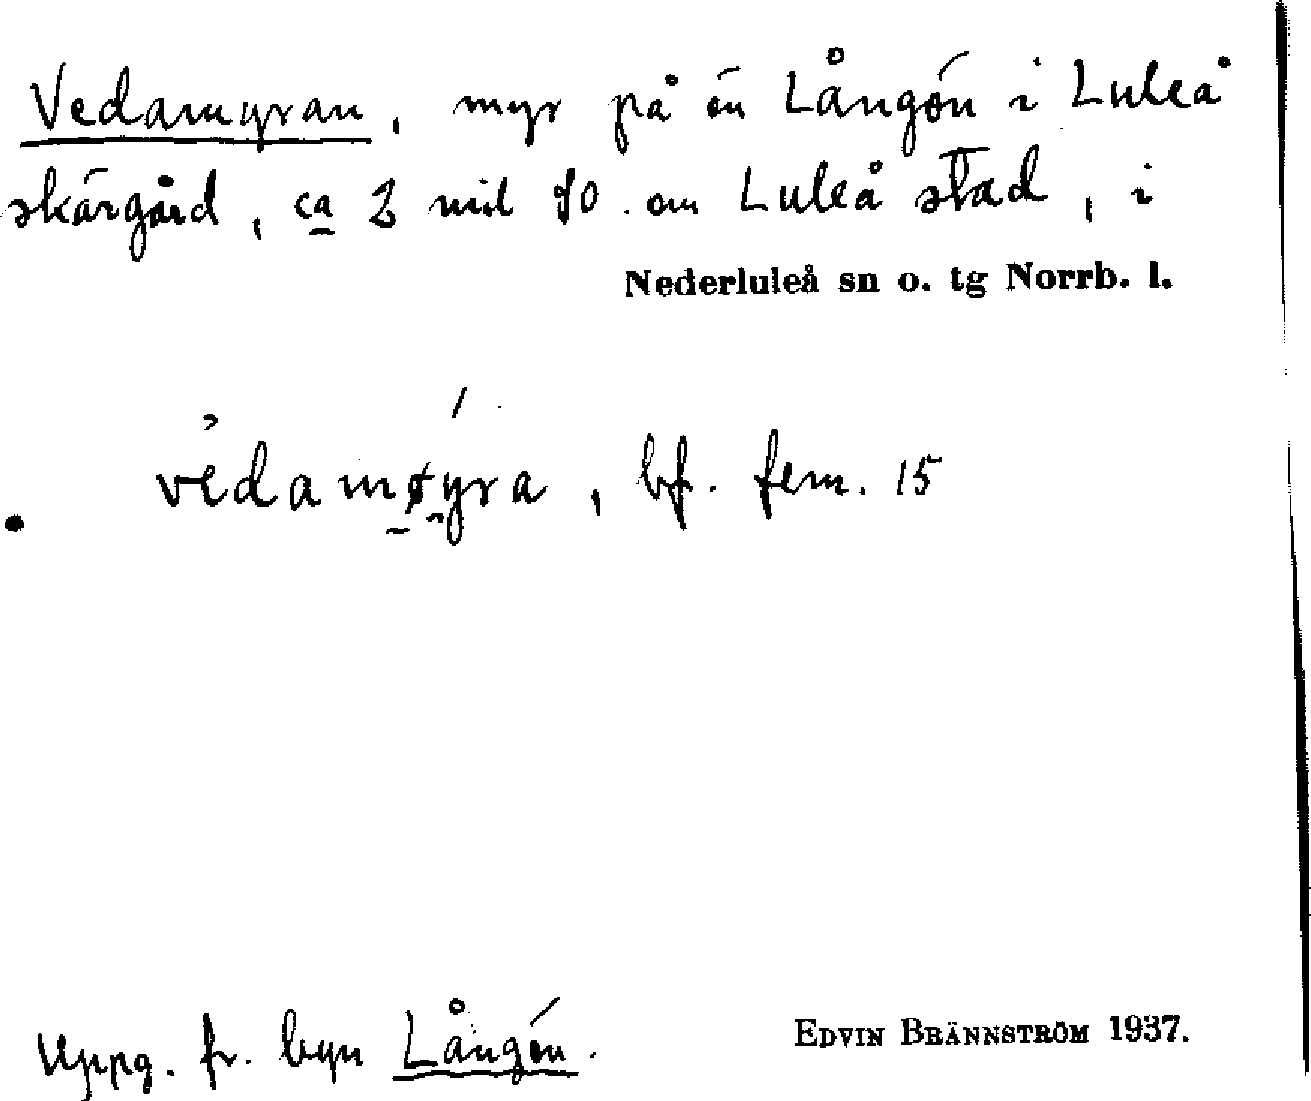 Vedamyran, myr på ön Långön i Luleå
skärgård, ca 2 mil SO. om Luleå stad, i
Nederluleå sn o. tg Norrb. l.
vedamøyra, bf. fem. 15
Uppg. fr. byn Långön.
EDVIN BRÄNNSTRÖM 1937.